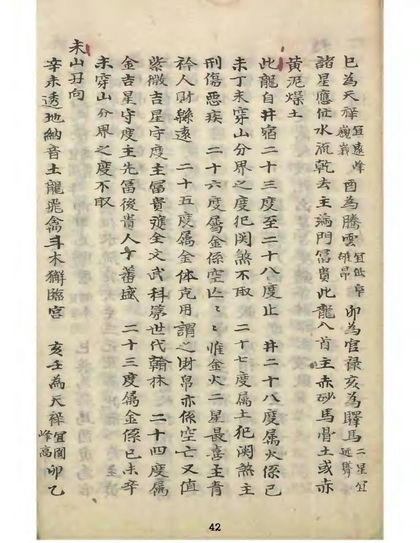 巳為天祥宜遠峰巍峩酉為騰雲宜低阜雄昂卯為官祿亥為驛馬二星宜遠聳
諸星應位水流乾去主滿門冨貴此龍八首主赤砂馬骨土或赤
黃泥燥土
此龍自井宿二十三度至二十八度止 井二十八度屬火係巳
未丁未穿山分界之度犯関煞不取 二十七度屬土犯関煞主
刑傷惡疾 二十六度屬金係空亡〻惟金火二星最喜主青
衿人財緜遠 二十五度屬金体克用謂之財帛亦係空亡又值
紫微吉星守度主冨貴雙全文武科第世代翰林 二十四度屬
金吉星守度主先冨後貴人丁蕃盛 二十三度屬金係巳未辛
未穿山分界之度不取
未山丑向
辛未透地納音土龍飛禽斗木獬臨宮 亥壬為天祥宜圓峰高卯乙
42